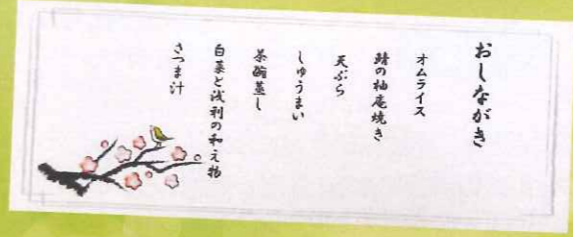 おしながき
オムライス
鯖の柚庵焼き
天ぷら
しゅうまい
茶碗蒸し
白菜と浅利の和え物
さつま汁